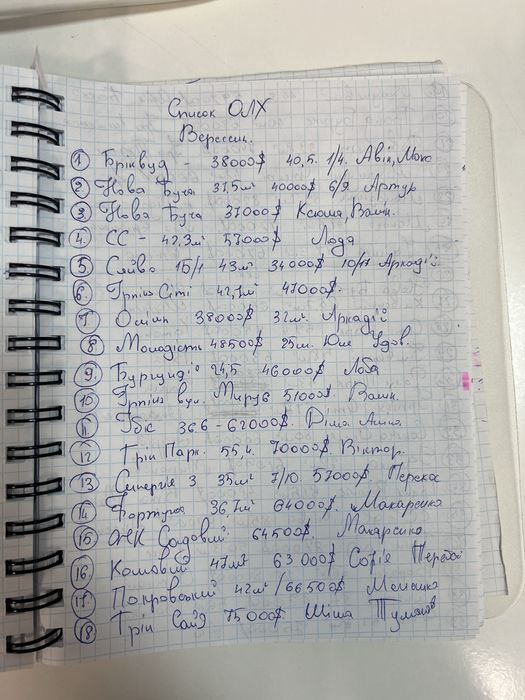 Список ОЛХ
Вересень.
1 Бріквуд - 38000$ 40,5. 1/4. Авік, Мако
2 Нова Буча 37,5м² 40000$ 6/9 Артур
3 Нова Буча 37000$ Ксюша, Валік.
4. СС - 42,3м² 57000$ Лода
5. Сяйво 1Б/1 43м² 34000$ 10/11 Аркадій
6. Ірпінь Сіті 42,7м² 47000$.
7 Оптім 38000$ 32м² Аркадій
8 Молодість 48500$ 25м² Юле Удов.
9. Бургунді 24,5 46000$ Лоба
10 Ірпінь вул. Миру 6 51000$ Валік.
11 Ібіс 36.6 - 62000$. Діма
12 Грін Парк. 55,4. 70000$. Віктор.
13 Синергія 3 35м² 7/10. 57000$.
14 Фортуна 36,7м² 64000$. Макаренко
15 ЖК Садовий 64500$. Макаренко
16 47м² 63 000$ Софія
17 Покровський 42м² / 66500$
18 Грін Сайд 75000$. Туманов